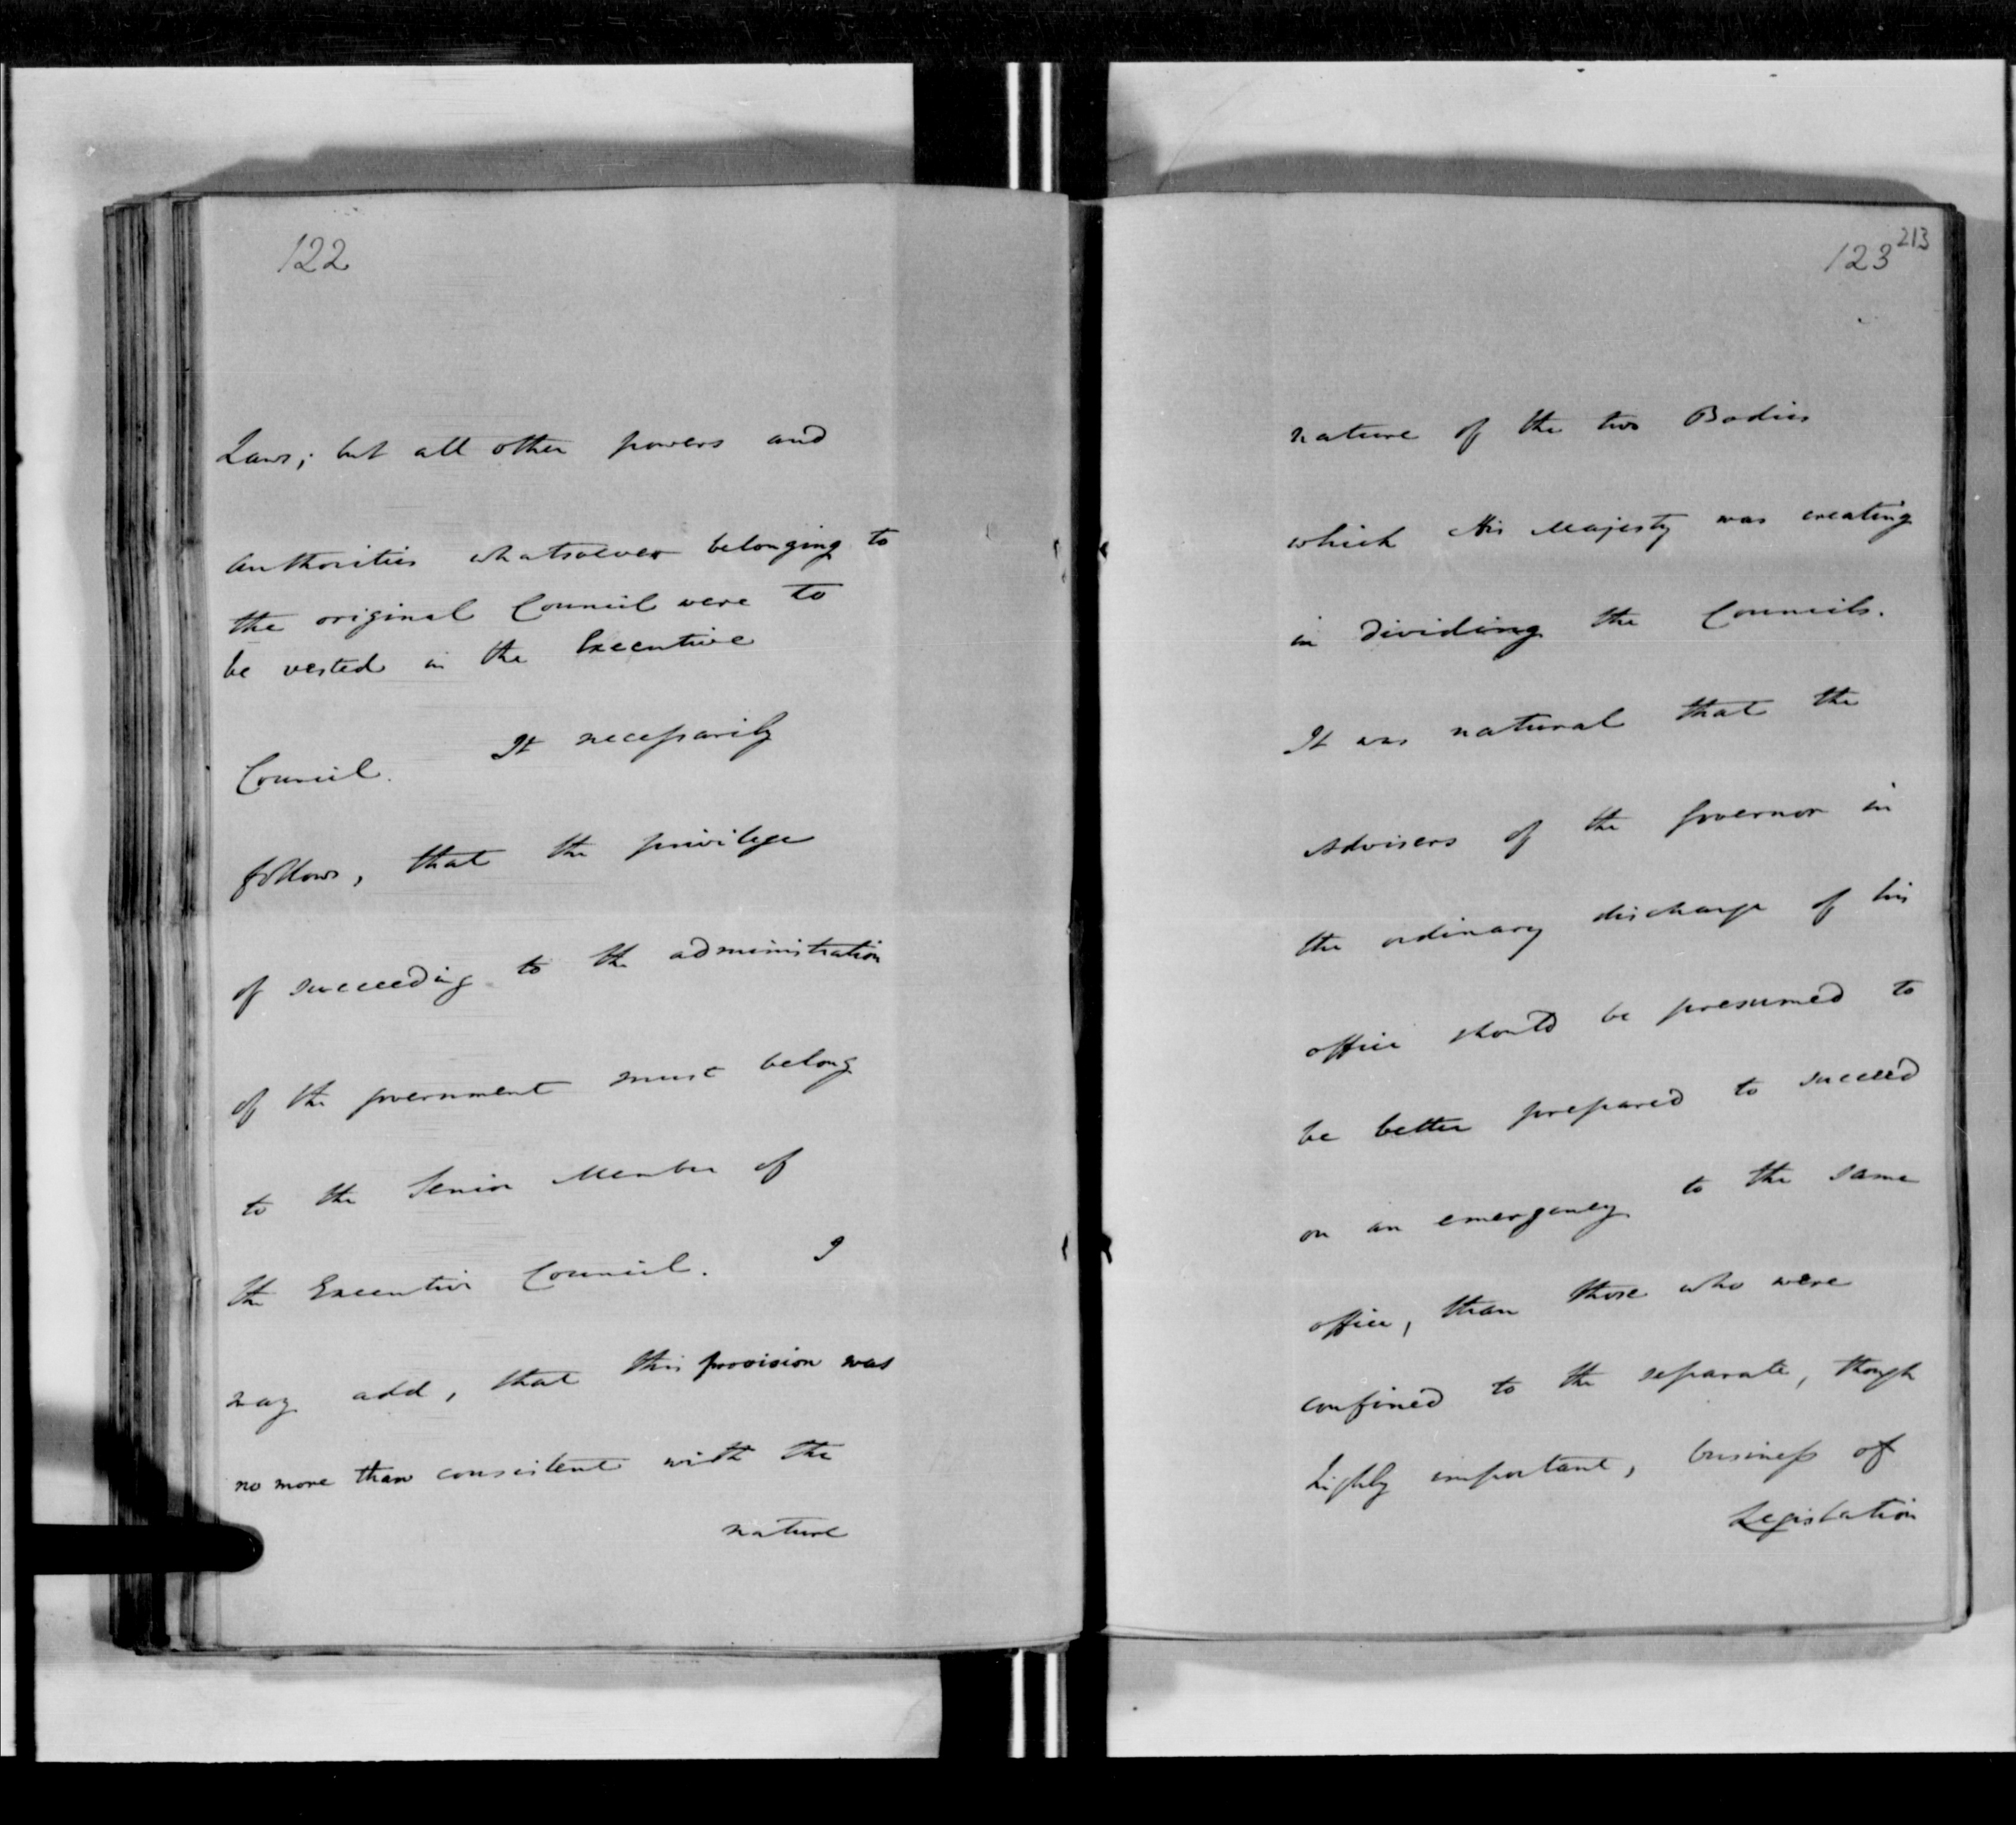 122
Laws; but all other powers and
authorities whatsoever belonging to
the original Council were to
be vested in the Executive
Council. It necessarily
follows, that the privilege
of succeeding to the administration
of the government must belong
to the Senior Member of
the Executive Council. I
may add, that this provision was
no more than consistent with the
nature
213
123
nature of the two Bodies
which His Majesty was creating
in dividing the Councils.
It was natural that the
Advisers of the Governor in
the ordinary discharge of his
office should be presumed to
be better prepared to succeed
on an emergency to the same
office, than those who were
confined to the separate, though
highly important, business of
Legislation